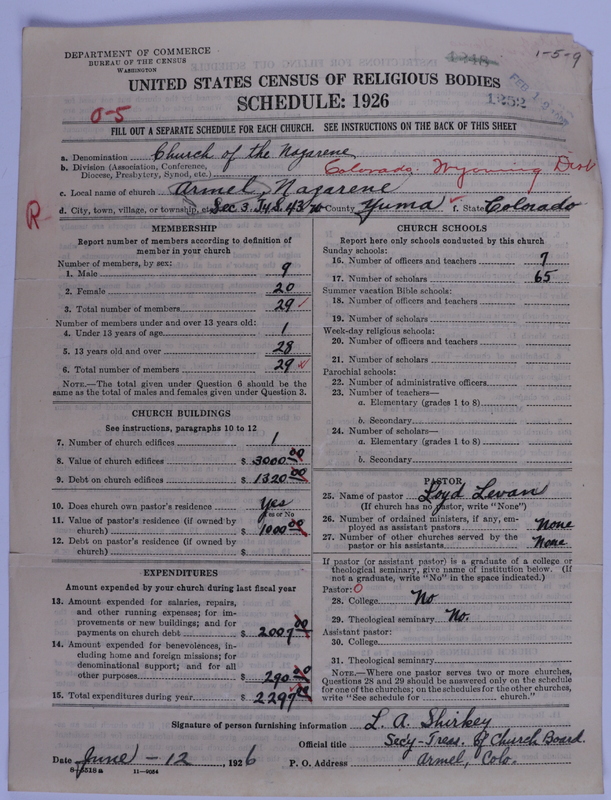 DEPARTMENT OF COMMERCE
BUREAU OF THE CENSUS
WASHINGTON
1-5-9
UNITED STATES CENSUS OF RELIGIOUS BODIES
SCHEDULE: 1926
1252
0-5
FILL OUT A SEPARATE SCHEDULE FOR EACH CHURCH. SEE INSTRUCTIONS ON THE BACK OF THIS SHEET
a. Denomination Church of the Nazarene
b. Division (Association, Conference, Diocese, Presbytery, Synod, etc.) Colorado, Wyoming Dist
c. Local name of church Armel, Nazarene
R
d. City, town, village, or township, etc. Sec 3. T4S. 43 County Yuma f. State Colorado
MEMBERSHIP
Report number of members according to definition of
member in your church
Number of members, by sex:
1. Male 9
2. Female 20
3. Total number of members 29
Number of members under and over 13 years old:
4. Under 13 years of age 1
5. 13 years old and over 28
6. Total number of members 29
NOTE.—The total given under Question 6 should be
same as the total of males and females given under Question 3.
CHURCH BUILDINGS
See instructions, paragraphs 10 to 12
7. Number of church edifices 1
8. Value of church edifices $ 3000 00
9. Debt on church edifices $ 1320 00
10. Does church own pastor's residence Yes
Yes or No
11. Value of pastor's residence (if owned by
church) $ 1000 00
12. Debt on pastor's residence (if owned by
church) $
EXPENDITURES
Amount expended by your church during last fiscal year
13. Amount expended for salaries, repairs,
and other running expenses; for im-
provements or new buildings; and for
payments on church debt $ 2007 00
14. Amount expended for benevolences, in-
cluding home and foreign missions; for
denominational support; and for all
other purposes $ 290 00
15. Total expenditures during year $ 2297 00
CHURCH SCHOOLS
Report here only schools conducted by this church
Sunday schools:
16. Number of officers and teachers 7
17. Number of scholars 65
Summer vacation Bible schools:
18. Number of officers and teachers
19. Number of scholars
Week-day religious schools:
20. Number of officers and teachers
21. Number of scholars
Parochial schools:
22. Number of administrative officers
23. Number of teachers—
a. Elementary (grades 1 to 8)
b. Secondary
24. Number of scholars—
a. Elementary (grades 1 to 8)
b. Secondary
PASTOR
25. Name of pastor Loyd Levan
(If church has no pastor, write "None")
26. Number of ordained ministers, if any, em-
ployed as assistant pastors None
27. Number of other churches served by the
pastor or his assistants None
If pastor (or assistant pastor) is a graduate of a college or
theological seminary, give name of institution below. (If
not a graduate, write "No" in the space indicated.)
Pastor: 0
28. College No
29. Theological seminary No.
Assistant pastor:
30. College
31. Theological seminary
NOTE.—Where one pastor serves two or more churches,
Questions 28 and 29 should be answered only on the schedule
for one of the churches; on the schedules for the other churches,
write "See schedule for church."
Signature of person furnishing information L. A. Shirkey
Official title Sec'y-Treas. of Church Board.
Date June - 12, 1926 P. O. Address Armel, Colo.
11-9084